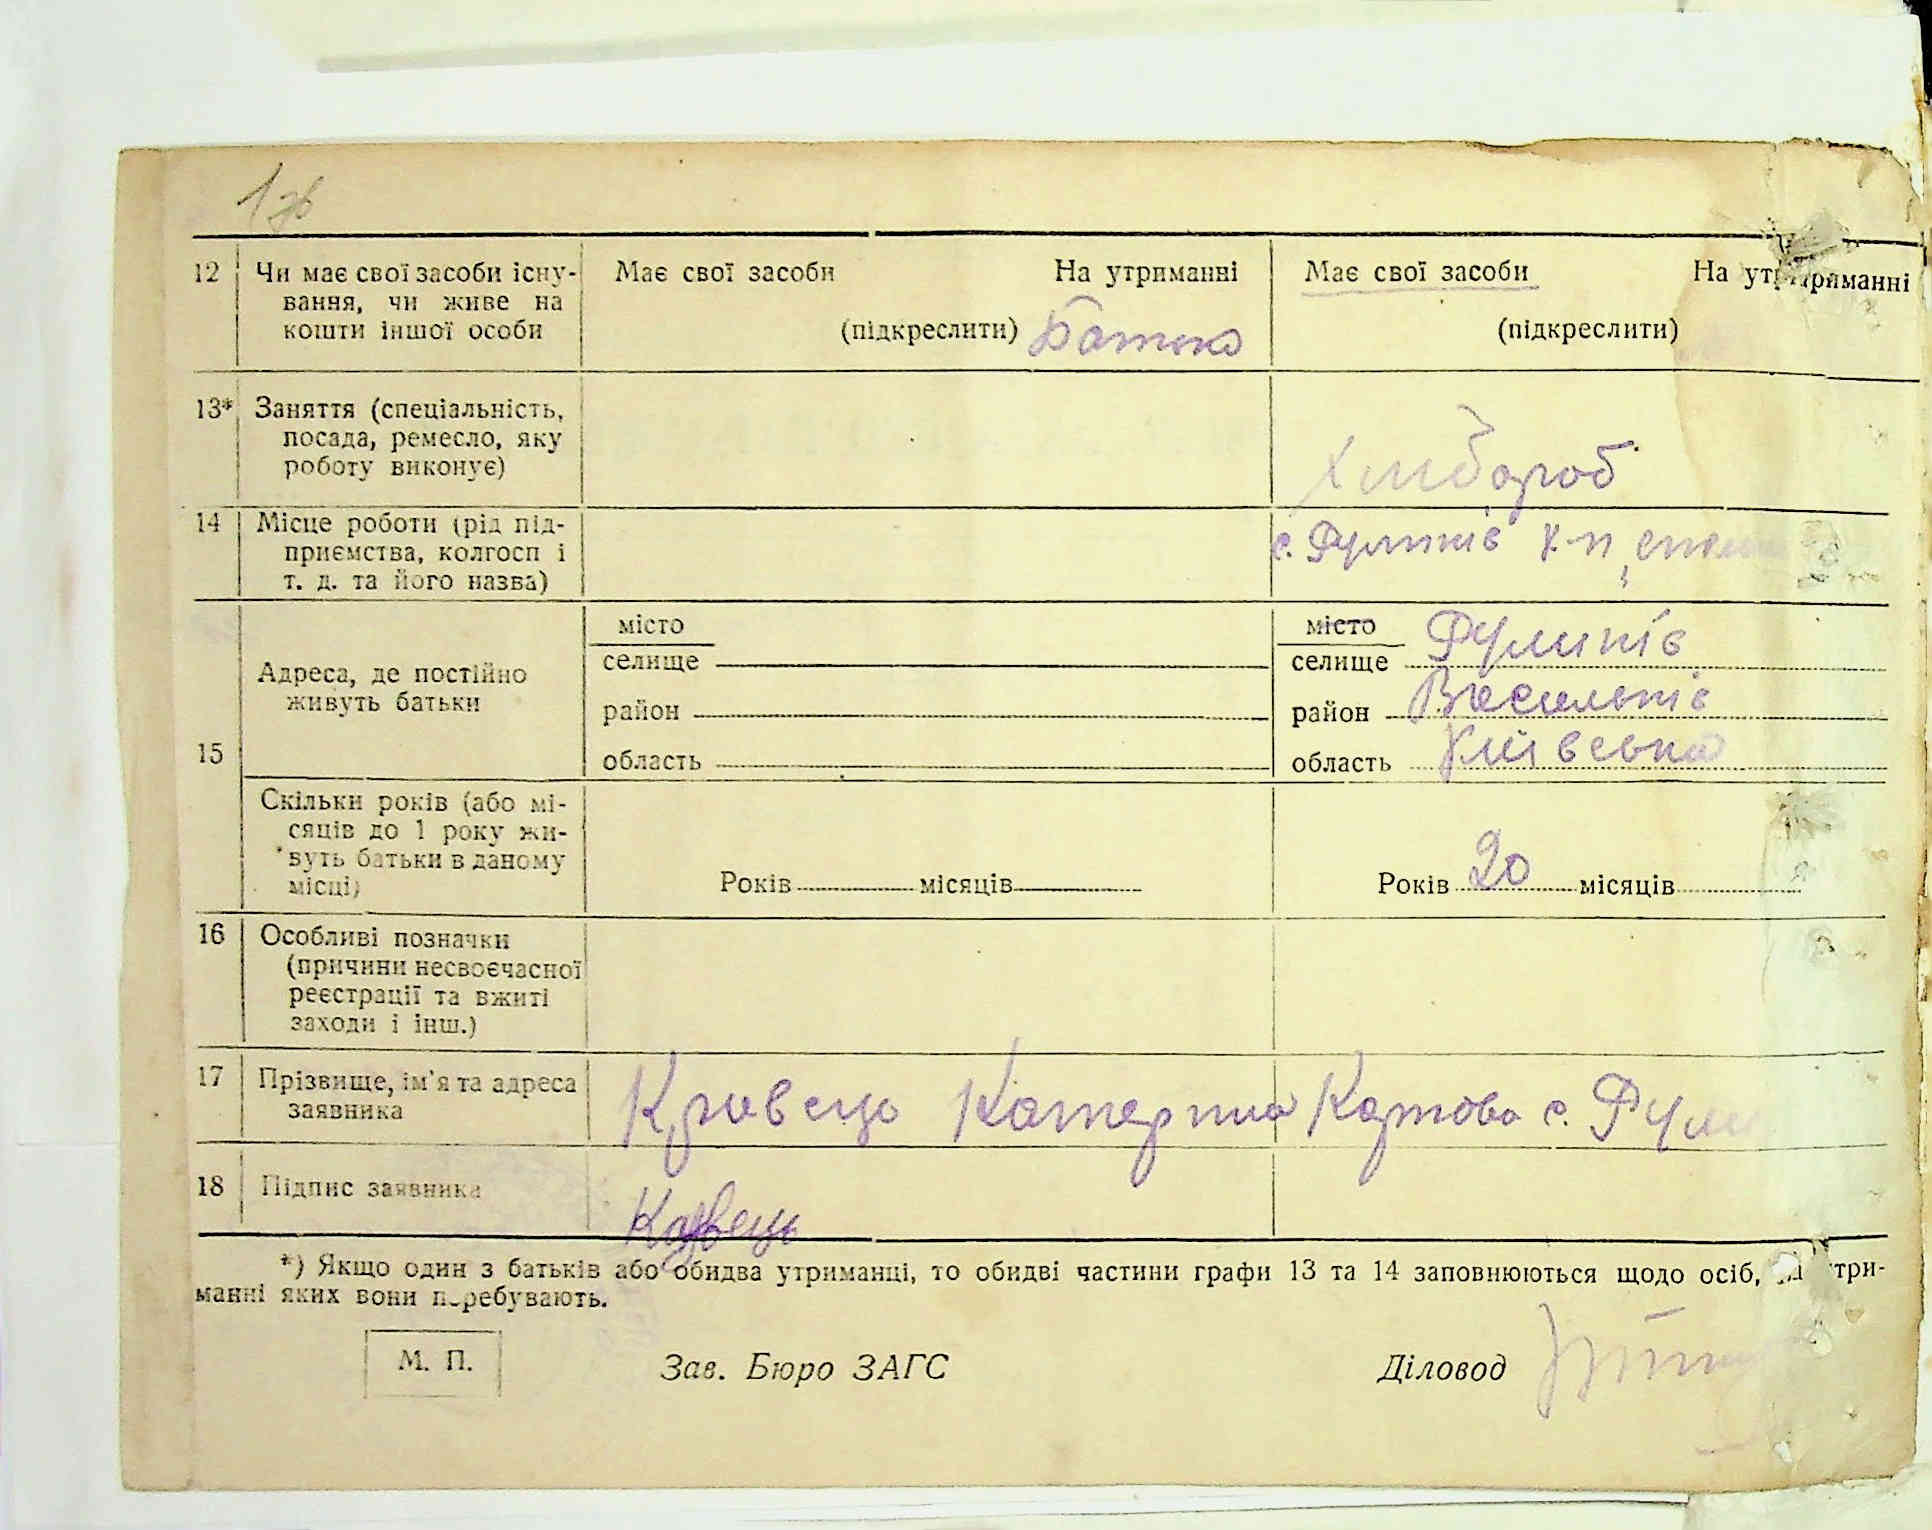 1зв
12 Чи має свої засоби існу- Має свої засоби На утриманні Має свої засоби На утриманні
вання, чи живе на
кошти іншої особи (підкреслити) Батько (підкреслити)
13* Заняття (спеціальність,
посада, ремесло, яку
роботу виконує) Хлибороб
14 Місце роботи (рід під- с.
приємства, колгосп і
т. д. та його назва)
місто місто
Адреса, де постійно селище селище
живуть батьки район район Васильків
15 область область Київська
Скільки років (або мі-
сяців до 1 року жи-
вуть батьки в даному
місці) Років місяців Років 20 місяців
16 Особливі позначки
(причини несвоєчасної
реєстрації та вжиті
заходи і інш.)
17 Прізвище, ім'я та адреса Кравець Катерина с.
заявника
18 Підпис заявника
*) Якщо один з батьків або обидва утриманці, то обидві частини графи 13 та 14 заповнюються щодо осіб, на утри-
манні яких вони перебувають.
М. П. Зав. Бюро ЗАГС Діловод